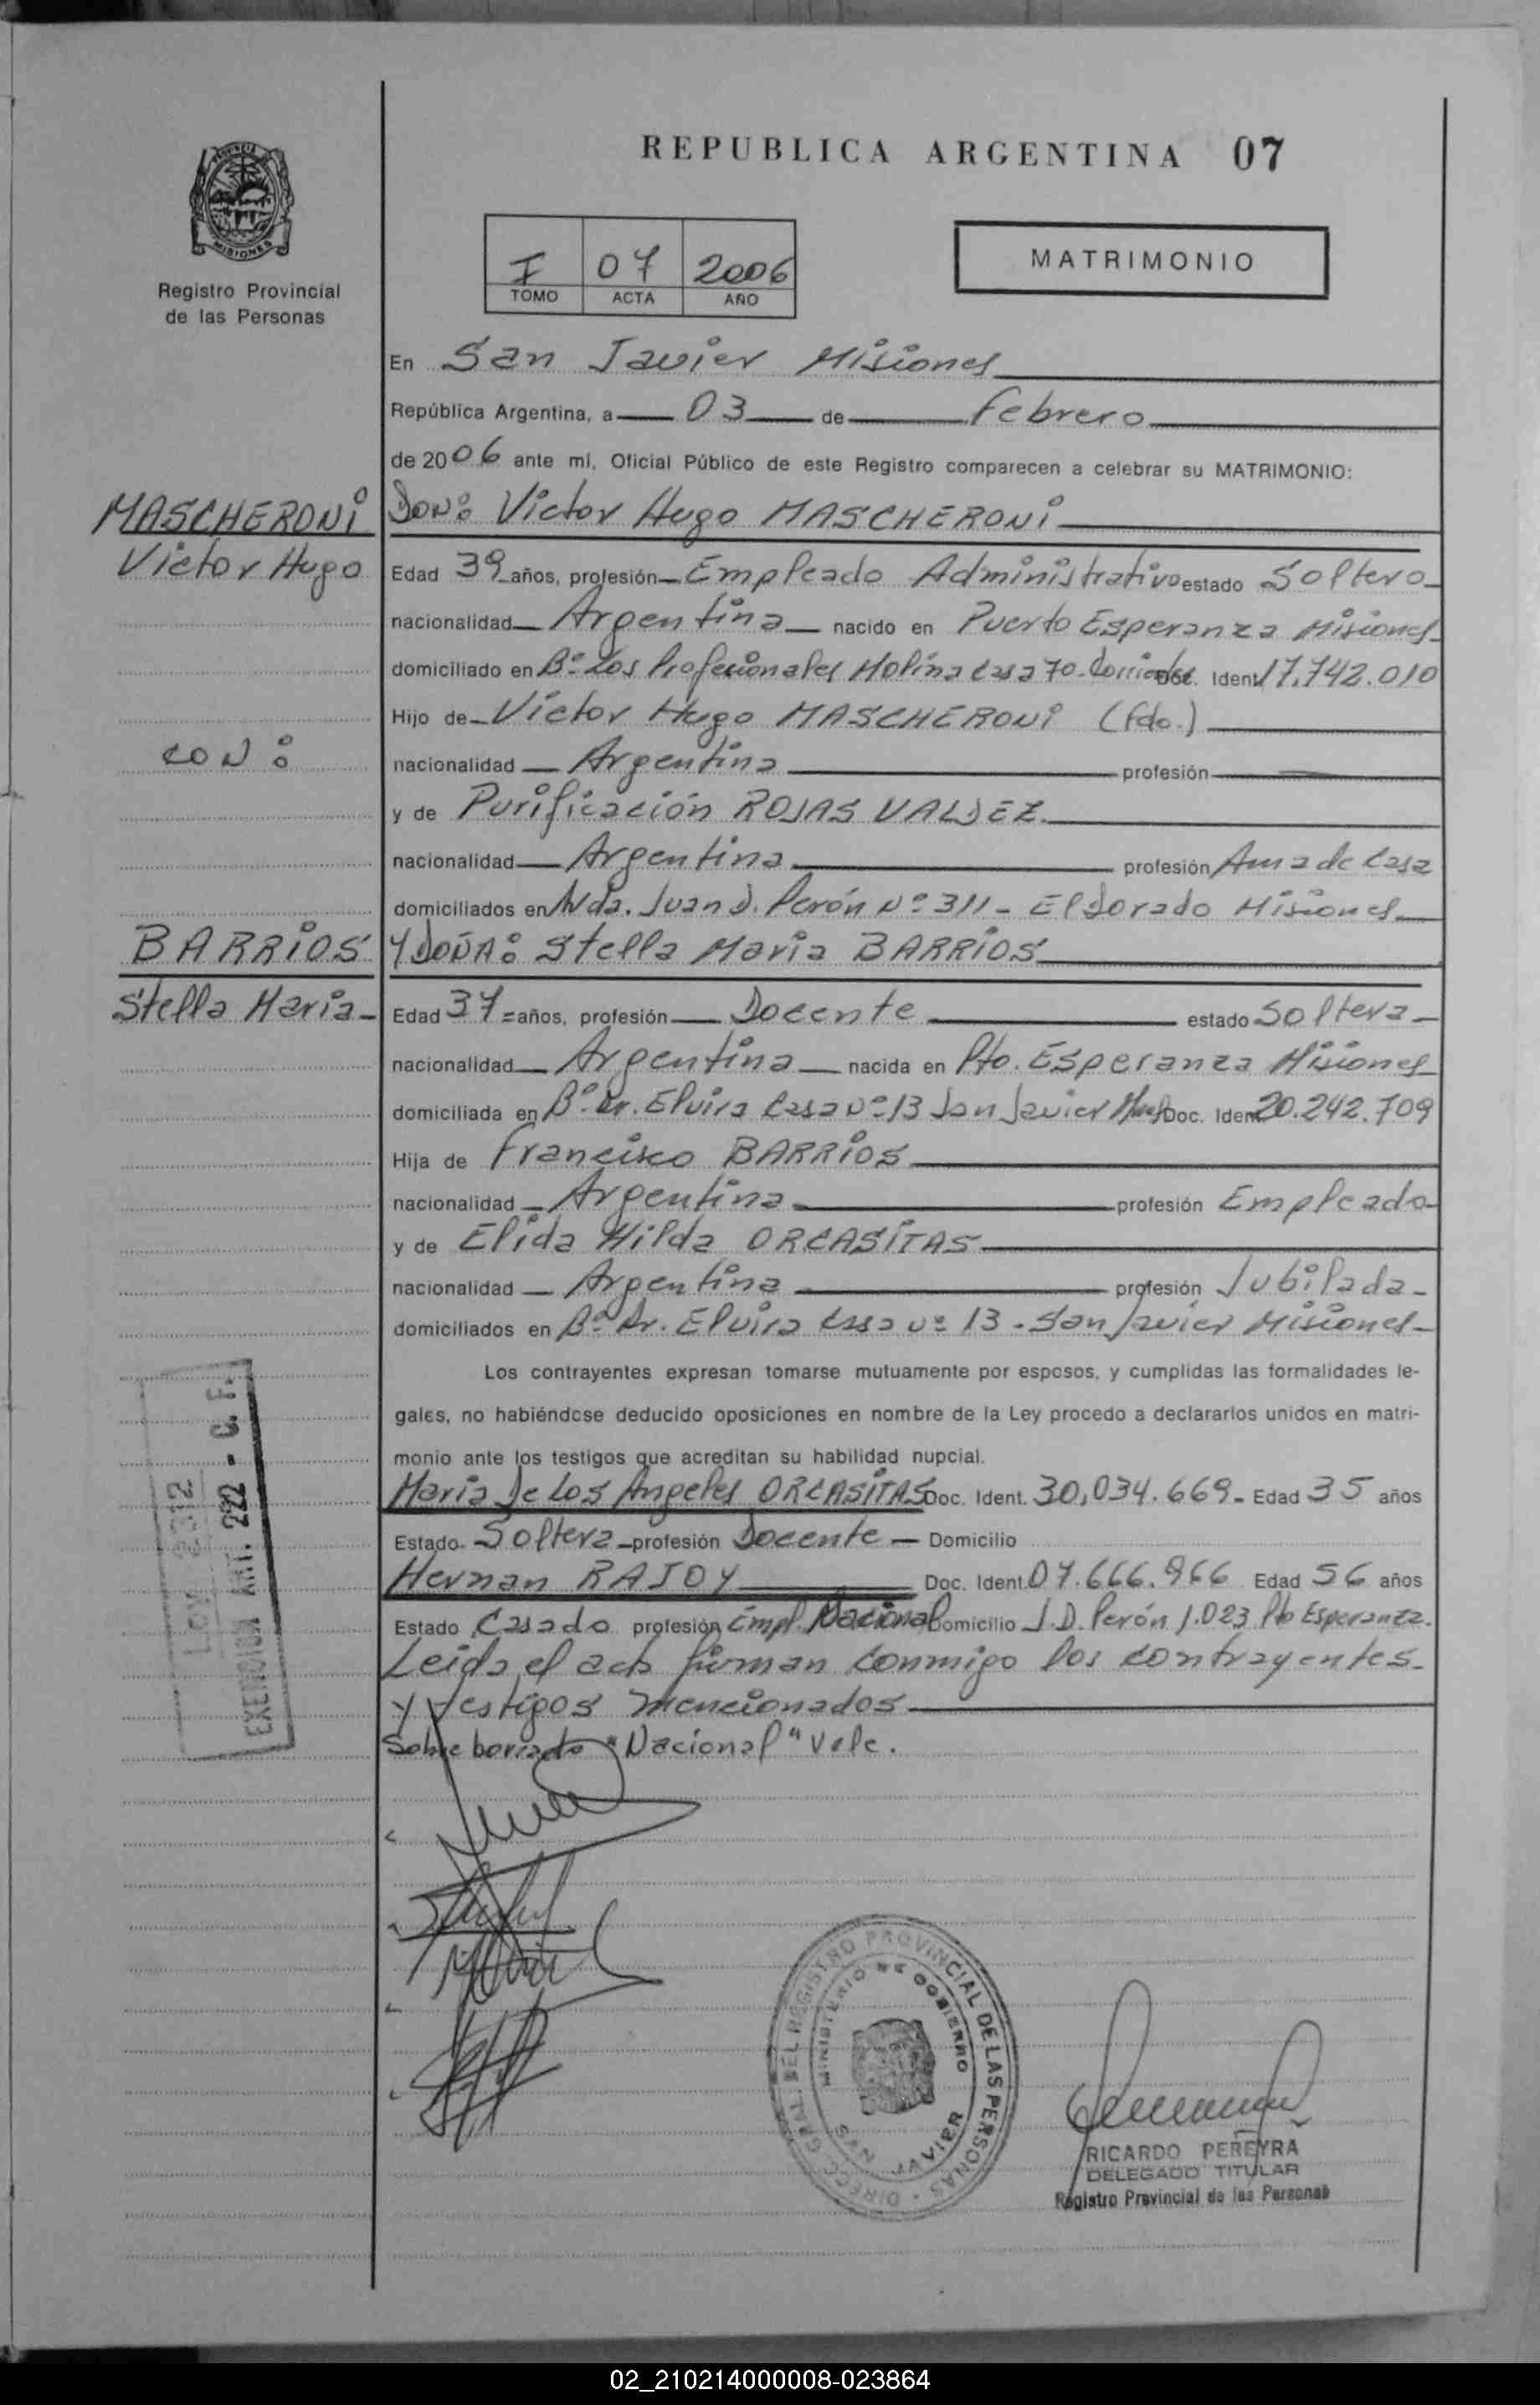 REPUBLICA ARGENTINA 07
PROVINCIA
MISIONES
Registro Provincial
de las Personas
I 07 2006
TOMO ACTA AÑO
MATRIMONIO
En San Javier Misiones
República Argentina, a 03 de Febrero
de 2006 ante mí, Oficial Público de este Registro comparecen a celebrar su MATRIMONIO:
MASCHERONI
Victor Hugo
CON:
BARRIOS
Stella Maria
DON: Victor Hugo MASCHERONI
Edad 39 años, profesión Empleado Administrativo estado Soltero
nacionalidad Argentina nacido en Puerto Esperanza Misiones
domiciliado en Bº Los Profesionales Molina Casa 70 - Corrientes Doc. Ident. 17.742.010
Hijo de Victor Hugo MASCHERONI (fdo.)
nacionalidad Argentina profesión
y de Purificación ROJAS VALDEZ
nacionalidad Argentina profesión Ama de Casa
domiciliados en Avda. Juan D. Perón Nº 311 - ElDorado Misiones
Y DOÑA: Stella Maria BARRIOS
Edad 37 años, profesión Docente estado Soltera
nacionalidad Argentina nacida en Pto. Esperanza Misiones
domiciliada en Bº Dr. Elvira Casa Nº 13 San Javier Mnes Doc. Ident. 20.242.709
Hija de Francisco BARRIOS
nacionalidad Argentina profesión Empleado
y de Elida Hilda ORCASITAS
nacionalidad Argentina profesión Jubilada
domiciliados en Bº Dr. Elvira Casa Nº 13 - San Javier Misiones
Los contrayentes expresan tomarse mutuamente por esposos, y cumplidas las formalidades le-
gales, no habiéndose deducido oposiciones en nombre de la Ley procedo a declararlos unidos en matri-
monio ante los testigos que acreditan su habilidad nupcial.
Maria De Los Angeles ORCASITAS Doc. Ident. 30.034.669 - Edad 35 años
Estado Soltera profesión Docente Domicilio
Hernan RAJOY Doc. Ident. 07.666.966 Edad 56 años
Estado Casado profesión Empl. Nacional Domicilio J.D. Perón 1.023 Pto Esperanza.
Leida el acta firman conmigo los contrayentes
y testigos mencionados
Sobre borrado "Nacional" Vale.
LEY 2312
EXENSION ART. 222 - C. F.
DIRECC. GRAL. DEL REGISTRO PROVINCIAL DE LAS PERSONAS
MINISTERIO DE GOBIERNO
SAN JAVIER
RICARDO PEREYRA
DELEGADO TITULAR
Registro Provincial de las Personas
02_210214000008-023864